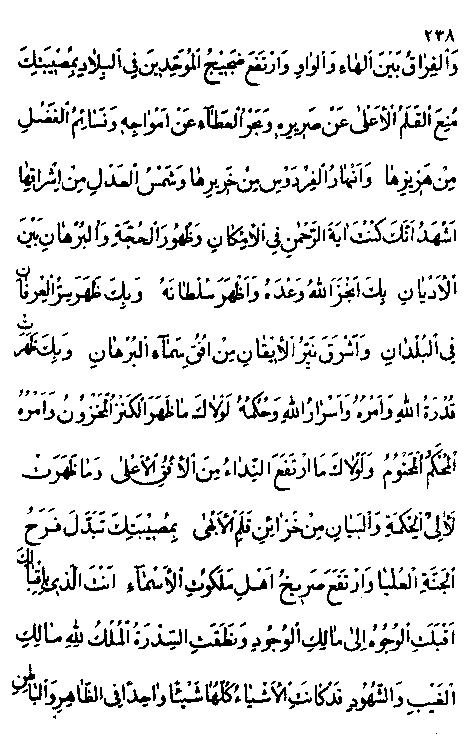 ٢٣٨
وَالْفِرَاقُ بَيْنَ الْهَاءِ وَالْوَاوِ وَارْتَفَعَ ضَجِيجُ الْمُوَحِّدِينَ فِي الْبِلَادِ بِمُصِيبَتِكَ
مُنِعَ الْقَلَمُ الْأَعْلَى عَنْ صَرِيرِهِ وَبَحْرُ الْعَطَاءِ عَنْ أَمْوَاجِهِ وَنَسَائِمُ الْفَضْلِ
مِنْ هَزِيزِهَا وَأَنْهَارُ الْفِرْدَوْسِ مِنْ خَرِيرِهَا وَشَمْسُ الْعَدْلِ مِنْ إِشْرَاقِهَا
أَشْهَدُ أَنَّكَ كُنْتَ آيَةَ الرَّحْمٰنِ فِي الْإِمْكَانِ وَظُهُورَ الْحُجَّةِ وَالْبُرْهَانِ بَيْنَ
الْأَدْيَانِ بِكَ أَنْجَزَ اللهُ وَعْدَهُ وَأَظْهَرَ سُلْطَانَهُ وَبِكَ ظَهَرَ سِرُّ الْعِرْفَانِ
فِي الْبُلْدَانِ وَأَشْرَقَ نَيِّرُ الْإِيقَانِ مِنْ أُفُقِ سَمَاءِ الْبُرْهَانِ وَبِكَ ظَهَرَتْ
قُدْرَةُ اللهِ وَأَمْرُهُ وَأَسْرَارُ اللهِ وَحُكْمُهُ لَوْلَاكَ مَا ظَهَرَ الْكَنْزُ الْمَخْزُونُ وَأَمْرُهُ
الْمُحْكَمُ الْمَحْتُومُ وَلَوْلَاكَ مَا ارْتَفَعَ النِّدَاءُ مِنَ الْأُفُقِ الْأَعْلَى وَمَا ظَهَرَتْ
لَآلِئُ الْحِكْمَةِ وَالْبَيَانِ مِنْ خَزَائِنِ قَلَمِ الْأَبْهَى بِمُصِيبَتِكَ تَبَدَّلَ فَرَحُ
الْجَنَّةِ الْعُلْيَا وَارْتَفَعَ صَرِيخُ أَهْلِ مَلَكُوتِ الْأَسْمَاءِ أَنْتَ الَّذِي بِإِقْبَالِكَ
أَقْبَلَتِ الْوُجُوهُ إِلَى مَالِكِ الْوُجُودِ وَنَطَقَتِ السِّدْرَةُ الْمُلْكُ لِلهِ مَالِكِ
الْغَيْبِ وَالشُّهُودِ قَدْ كَانَتِ الْأَشْيَاءُ كُلُّهَا شَيْئًا وَاحِدًا فِي الظَّاهِرِ وَالْبَاطِنِ